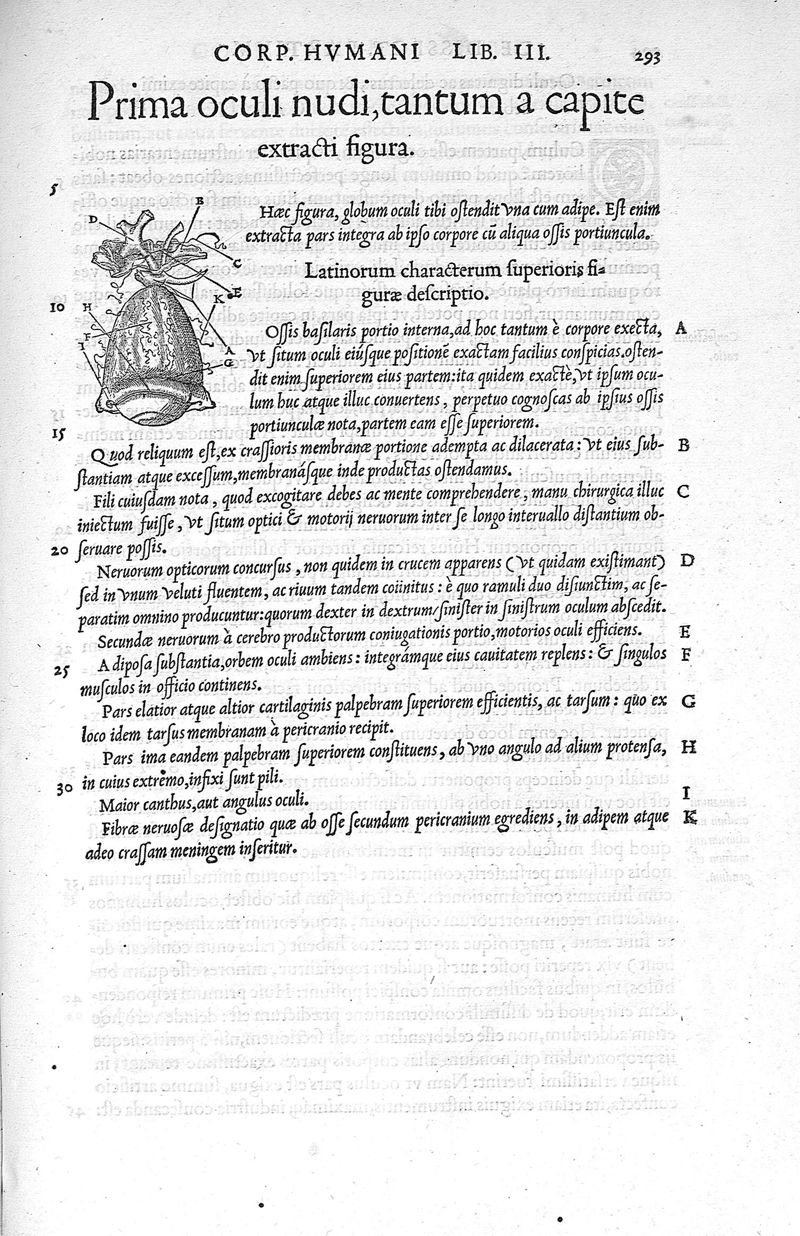 CORP. HVMANI LIB. III. 293
Prima oculi nudi, tantum a capite
extracti figura.
5
Hæc figura, globum oculi tibi ostendit vna cum adipe. Est enim
extracta pars integra ab ipso corpore cū aliqua ossis portiuncula.
Latinorum characterum superioris fi-
guræ descriptio.
D
B
C
E
K
10
H
F
I
A
G
Ossis basilaris portio interna, ad hoc tantum è corpore execta, A
vt situm oculi eiúsque positionē exactam facilius conspicias, osten-
dit enim superiorem eius partem: ita quidem exactè, vt ipsum ocu-
lum huc atque illuc conuertens, perpetuo cognoscas ab ipsius ossis
portiunculæ nota, partem eam esse superiorem.
15
Quod reliquum est, ex crassioris membranæ portione adempta ac dilacerata: vt eius sub- B
stantiam atque excessum, membranásque inde productas ostendamus.
Fili cuiusdam nota, quod excogitare debes ac mente comprehendere, manu chirurgica illuc C
iniectum fuisse, vt situm optici & motorij neruorum inter se longo interuallo distantium ob-
20 seruare possis.
Neruorum opticorum concursus, non quidem in crucem apparens (vt quidam existimant) D
sed in vnum veluti fluentem, ac riuum tandem coiinitus: è quo ramuli duo disiunctim, ac se-
paratim omnino producuntur: quorum dexter in dextrum/sinister in sinistrum oculum abscedit.
Secundæ neruorum à cerebro productorum coniugationis portio, motorios oculi efficiens. E
25 Adiposa substantia, orbem oculi ambiens: integrámque eius cauitatem replens: & singulos F
musculos in officio continens.
Pars elatior atque altior cartilaginis palpebram superiorem efficientis, ac tarsum: quo ex G
loco idem tarsus membranam à pericranio recipit.
Pars ima eandem palpebram superiorem constituens, ab vno angulo ad alium protensa, H
30 in cuius extremo, infixi sunt pili.
Maior canthus, aut angulus oculi. I
Fibræ neruosæ designatio quæ ab osse secundum pericranium egrediens, in adipem atque K
adeo crassam meningem inseritur.